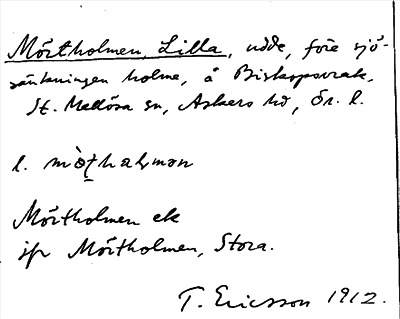 Mörtholmen, Lilla, udde, före sjö-
sänkningen holme, å Biskopsvrak,
St. Mellösa sn, Askers hd, Ör. l.
l. 
Mörtholmen ek
jfr Mörtholmen, Stora.
T. Ericsson 1912.